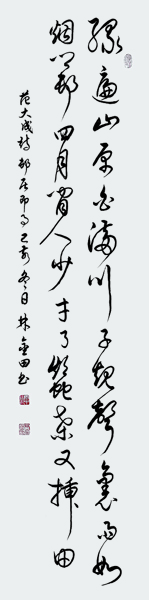 绿遍山原白满川子规声里雨如
烟乡邨四月闲人少才了蚕桑又插田
范大成诗邨居即事己亥冬日林金田书